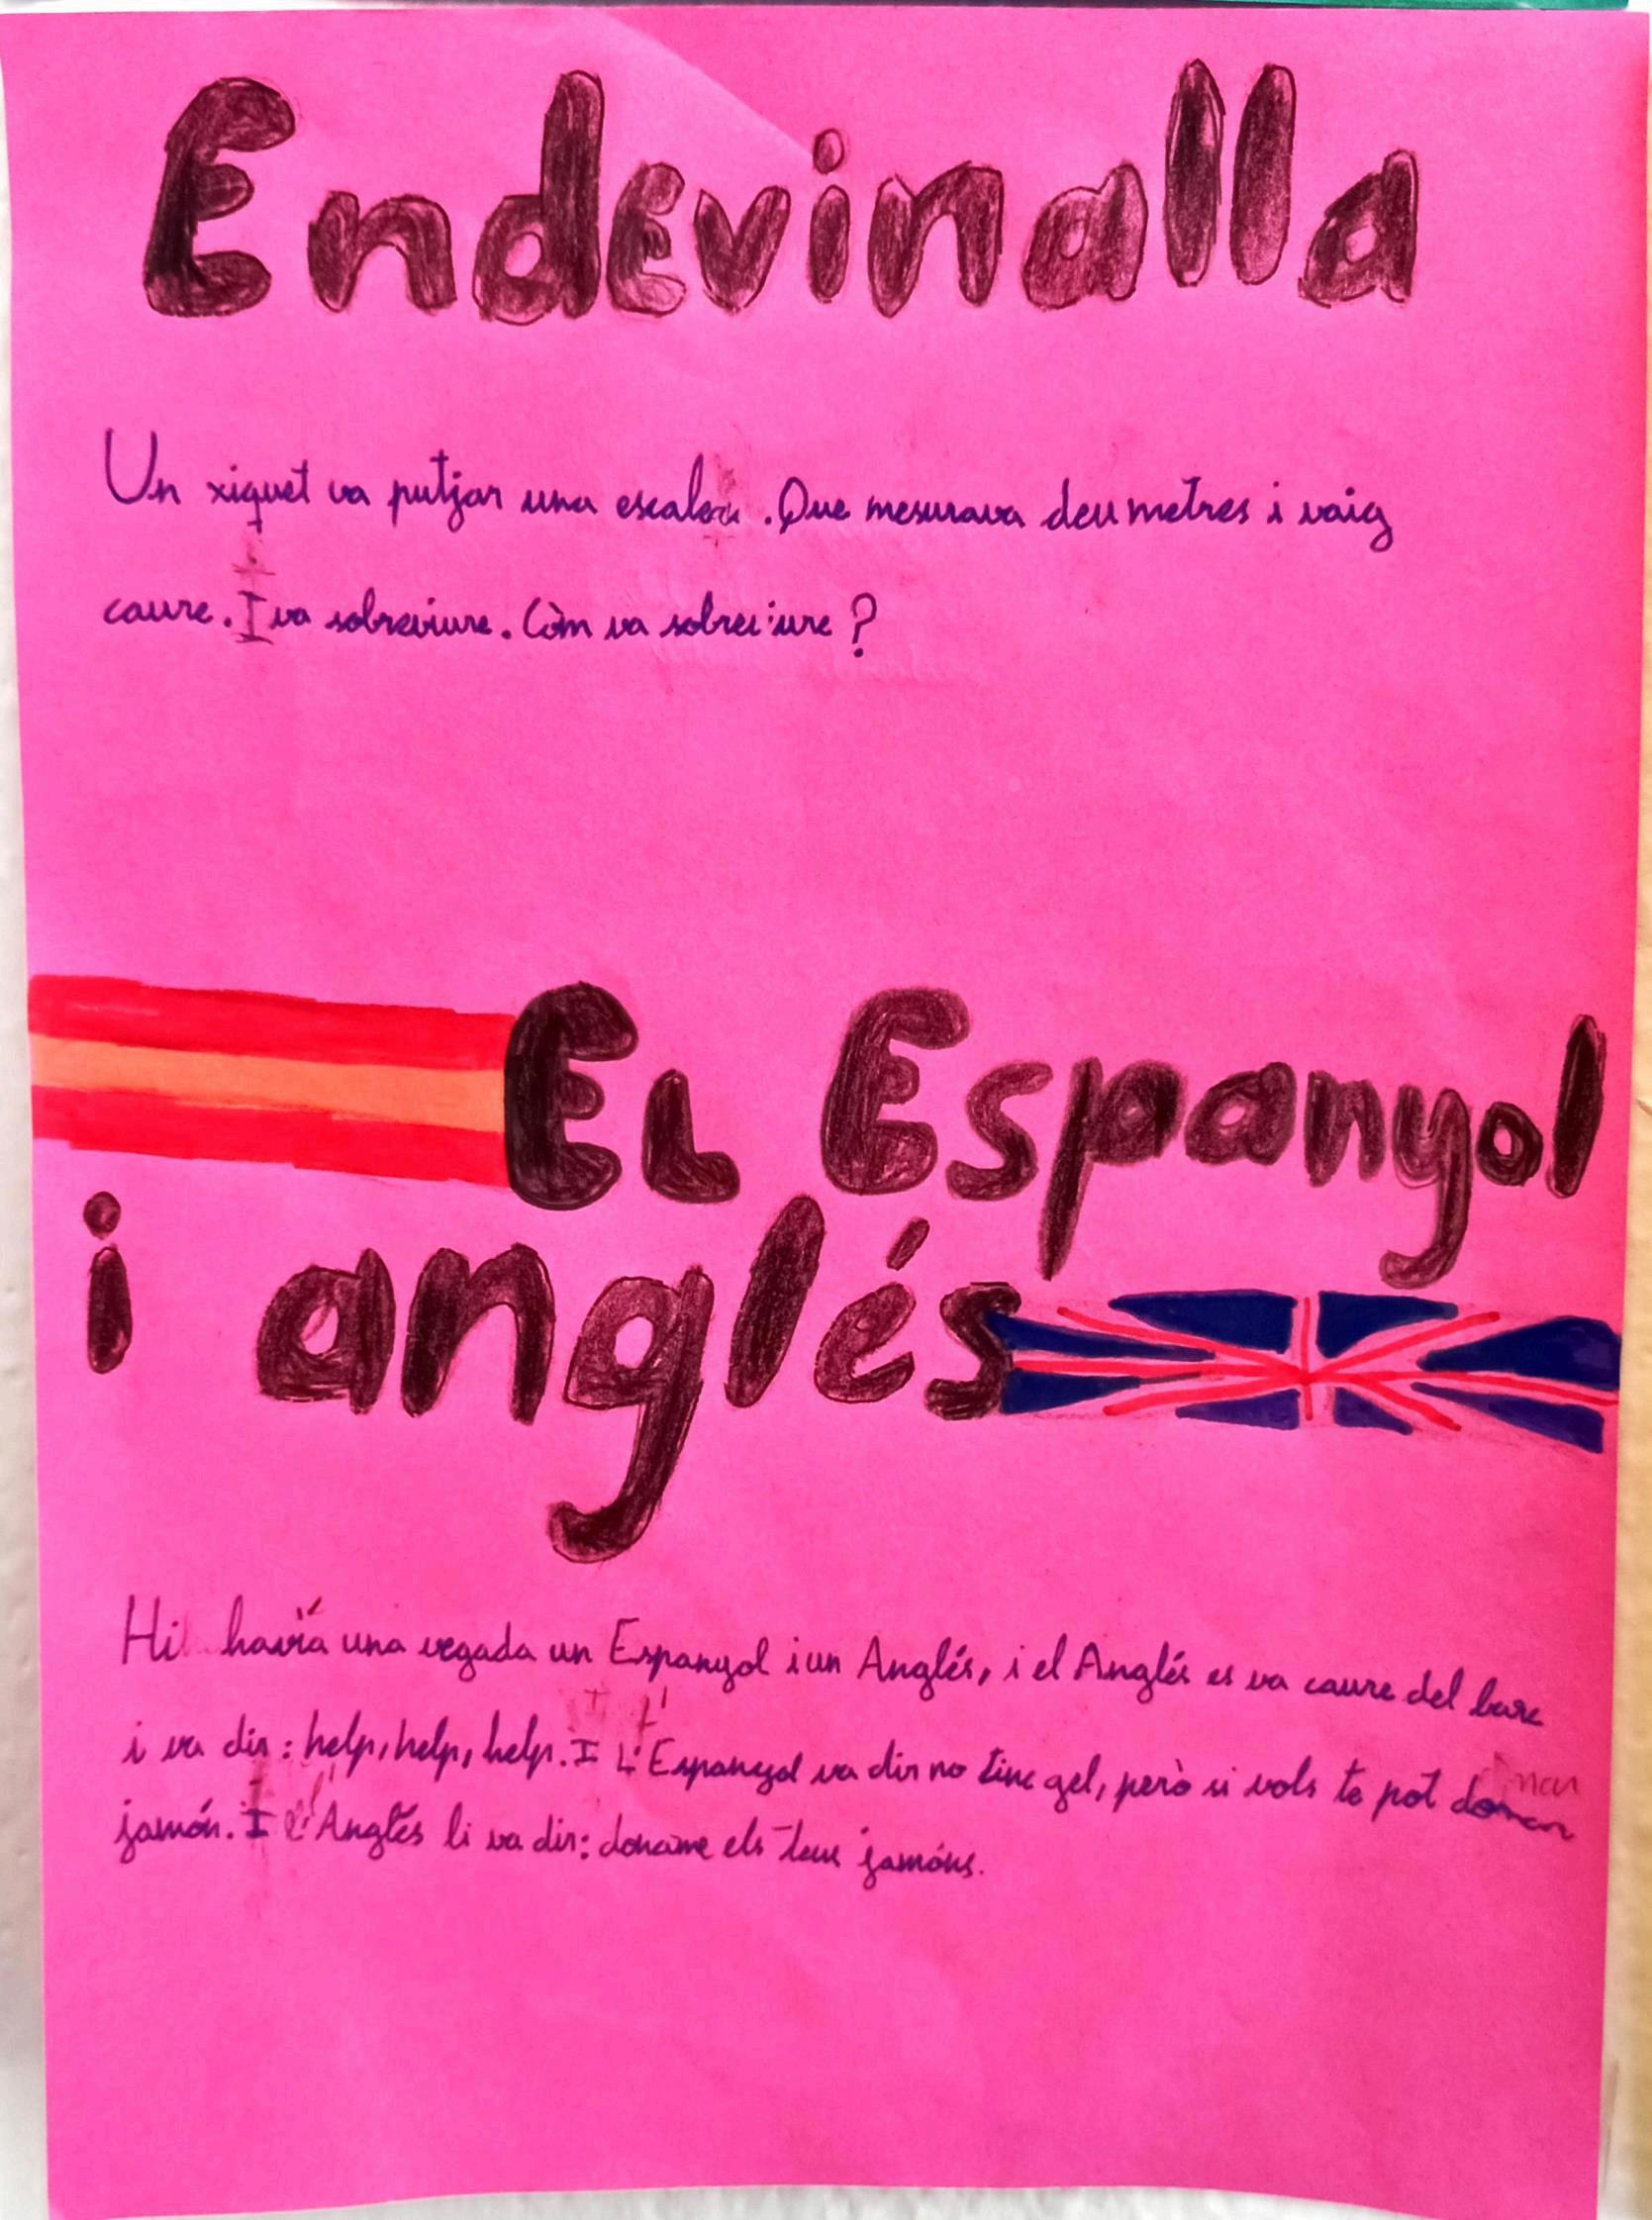 Endevinalla
Un xiquet va putjar una escalera. Que mesurava deu metres i vaig
caure. I va sobreviure. Còm va sobreviure?
El Espanyol
i anglés
Hi havia una vegada un Espanyol i un Anglés, i el Anglés es va caure del barc
i va dir: help, help, help. I L'Espanyol va dir no tinc gel, però si vols te pot donar
jamón. I l'Anglés li va dir: doname els teus jamóns.